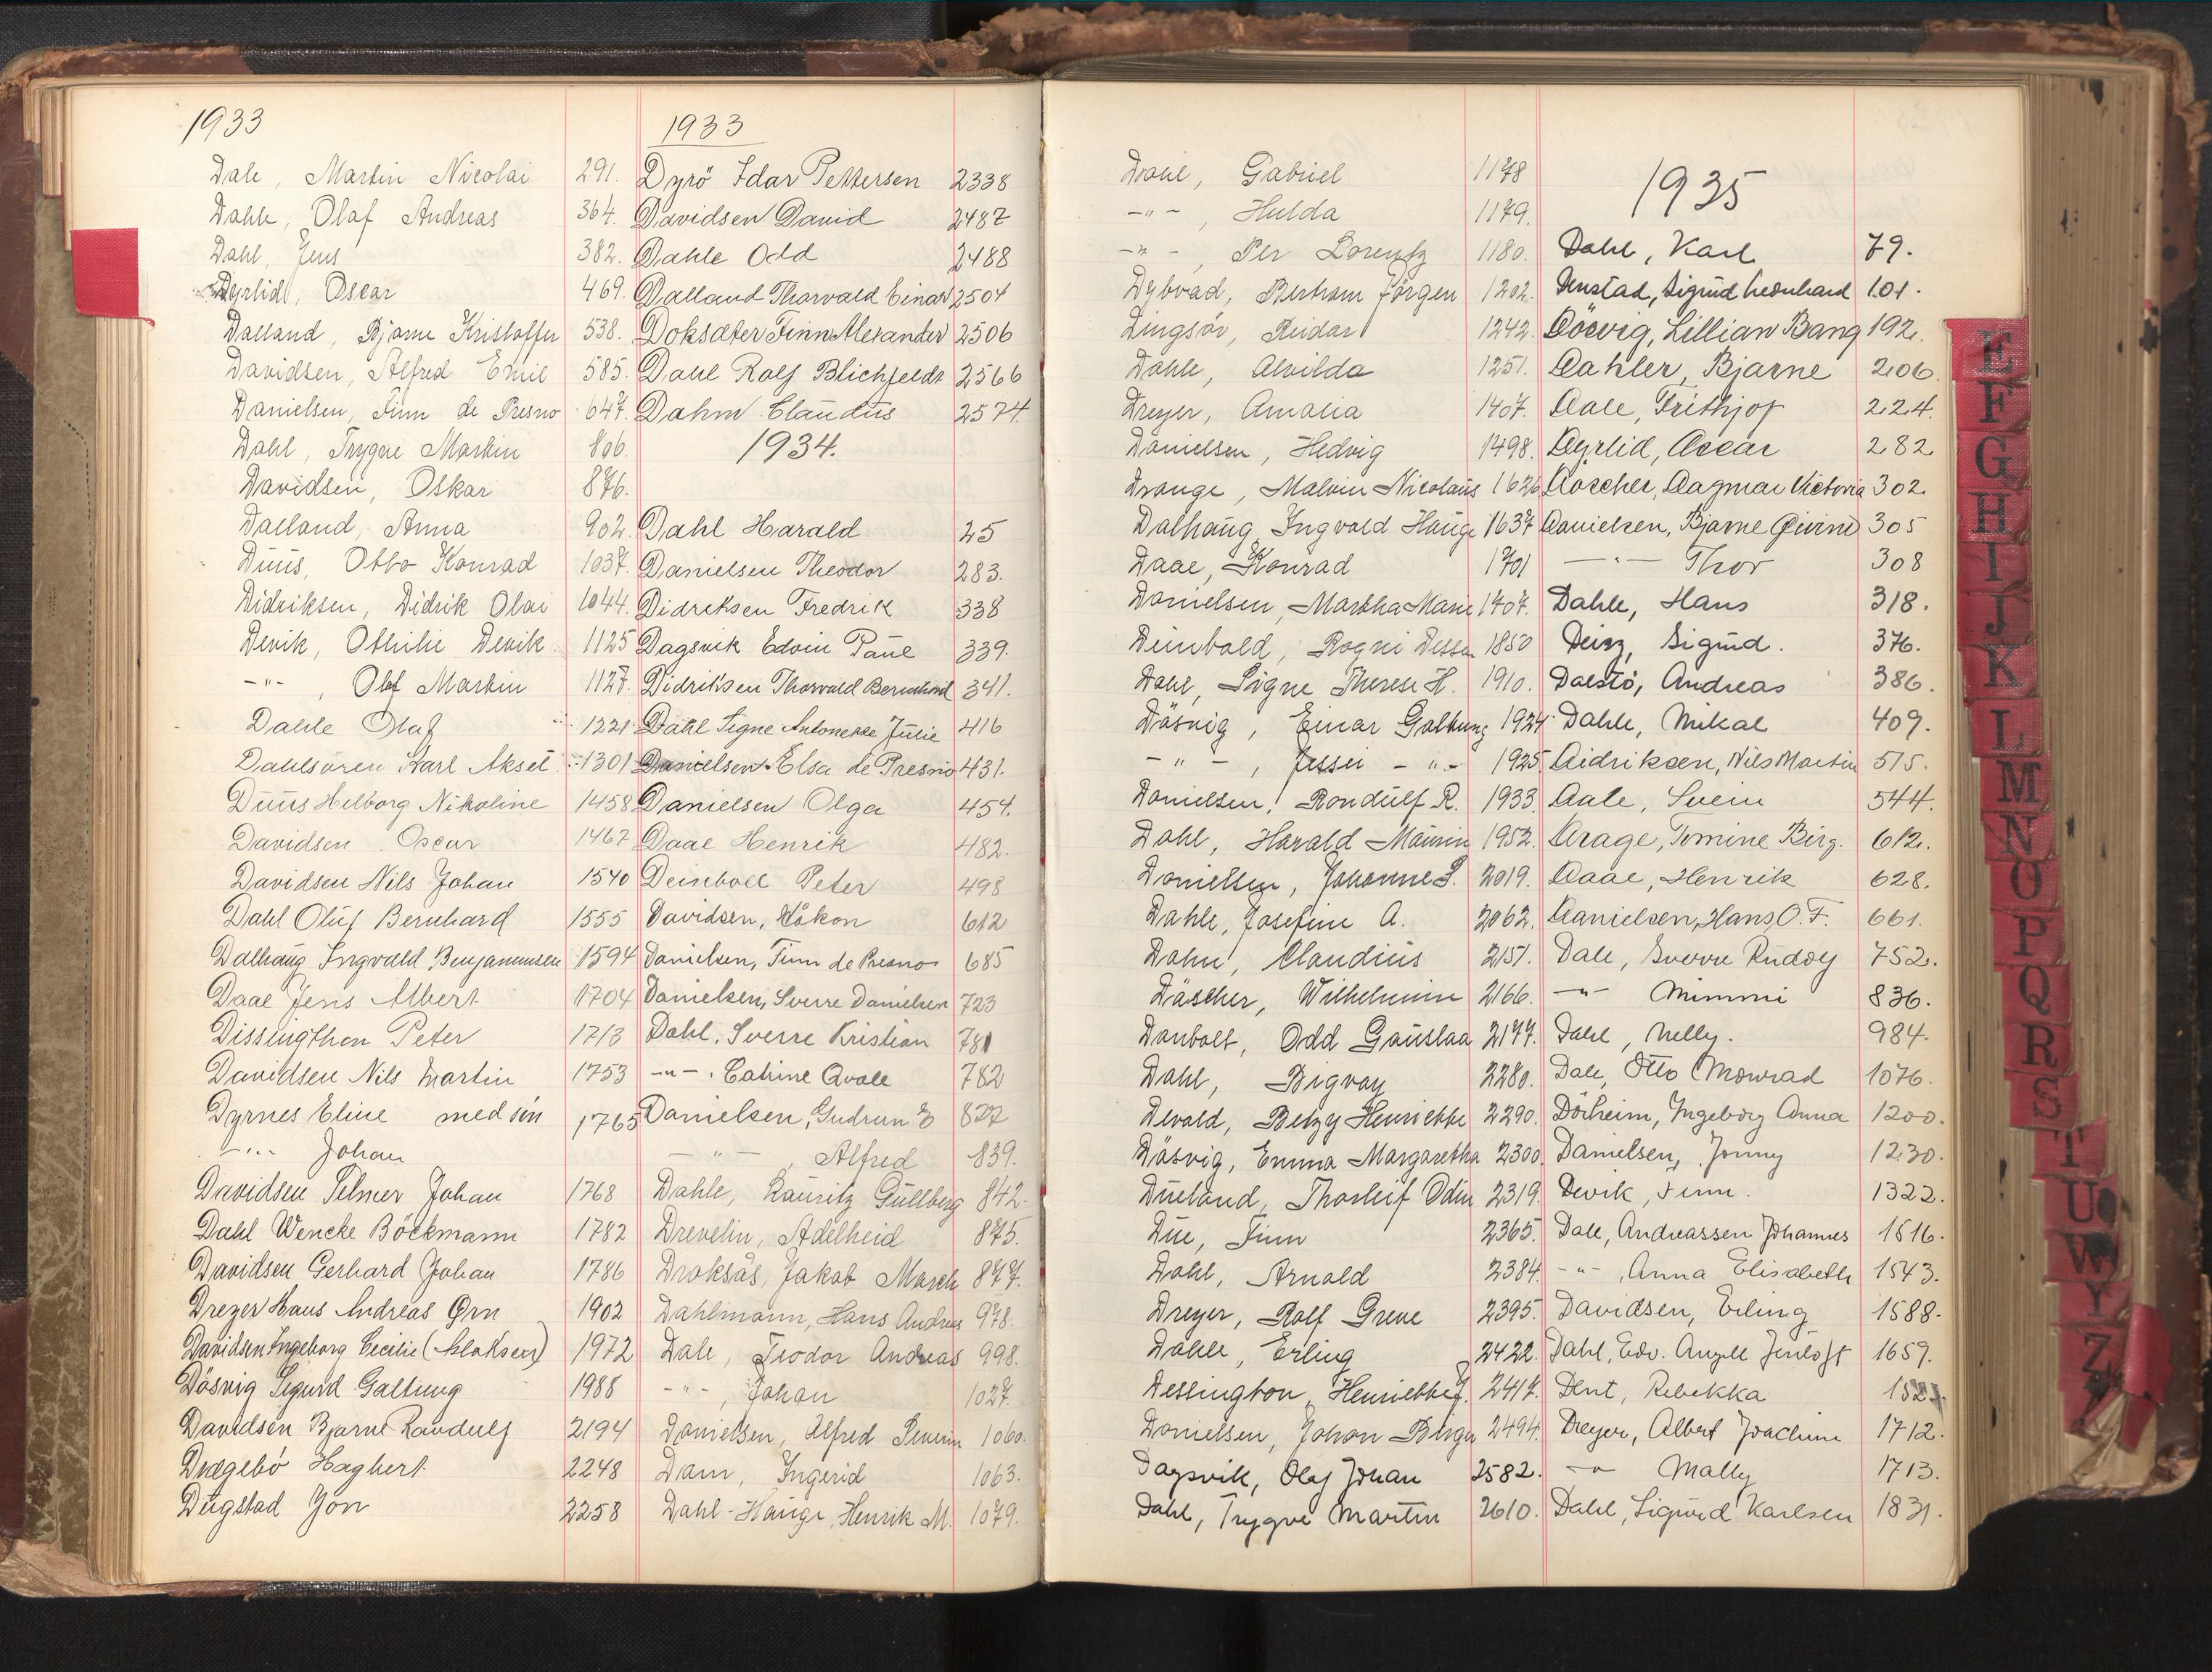 1933
Dale, Martin Nicolai 291.
Dahle, Olaf Andreas 364.
Dahl, Jens 382.
Dyrlid, Oscar 469.
Dalland, Bjarne Kristoffer 538.
Davidsen, Alfred Emil 585.
Danielsen, Finn de Presno 647.
Dahl, Trygve Martin 806.
Davidsen, Oskar 876.
Dalland, Anna 902.
Duus, Otto Konrad 1037.
Didriksen, Didrik Olai 1044.
Devik, Othilie Devik 1125
-"- , Olaf Martin 1127.
Dahle Olaf 1221
Dahlsören Karl Aksel 1301
Duus Helborg Nikoline 1458
Davidsen Oscar 1467
Davidsen Nils Johan 1540
Dahl Oluf Bernhard 1555
Dalhaug Ingvald Benjaminsen 1594
Daae Jens Albert 1704
Dissingthon Peter 1713
Davidsen Nils Martin 1753
Dyrnes Eline med sön 1765
-"- Johan
Davidsen Telmer Johan 1768
Dahl Wencke Böckmann 1782
Davidsen Gerhard Johan 1786
Dreyer Hans Andreas Ørn 1902
Davidsen Ingeborg Cecilie 1972
Dösvig Sigurd Galtung 1988
Davidsen Bjarne Randulf 2194
Drægebö Hagbert 2248
Dugstad Jon 2258
1933
Dyrö Idar Pettersen 2338
Davidsen David 2487
Dahle Odd 2488
Dalland Thorvald Einar 2504
Doksæter Finn Alexander 2506
Dahl Rolf Blichfeldt 2566
Dahm Claudius 2574
1934.
Dahl Harald 25
Danielsen Theodor 283.
Didriksen Fredrik 338
Dagsvik Edvin Paul 339.
Didriksen Thorvald Bernhard 341.
Dahl Signe Antonette Julie 416
Danielsen Elsa de Presno 431.
Danielsen Olga 454.
Daae Henrik 482.
Deinboll Peter 498
Davidsen, Håkon 612
Danielsen, Finn de Presno 685
Danielsen, Sverre Danielsen 723
Dahl, Sverre Kristian 781
-"- , Catrine Qvale 782
Danielsen, Gudrun E 827
-"- , Alfred 839.
Dahle, Lauritz Gullberg 842.
Drevelin, Adelheid 875.
Droksås, Jakob March 877.
Dahlmann, Hans Andreas 978.
Dale, Teodor Andreas 998.
-"- , Johan 1027.
Danielsen, Alfred Severin 1060.
Dam, Ingerid 1063.
Dahl-Hauge, Henrik M. 1079.
Dahl, Gabriel 1178
-"- , Hulda 1179.
-"- , Per Lorentz 1180.
Dybvad, Bertram Jörgen 1202.
Dingsör, Reidar 1242.
Dahle, Alvilda 1251.
Dreyer, Amalia 1407.
Danielsen, Hedvig 1498.
Drange, Malvin Nicolaus 1626
Dalhaug, Ingvald Hauge 1637
Daae, Konrad 1701
Danielsen, Martha Marie 1707.
Deinbold, Rogni 1850
Dahl, Signe Therese H. 1910.
Däsvig, Einar Galtung 1924
-"- , Jessie -"- 1925.
Danielsen, Randulf R. 1933
Dahl, Harald 1952.
Danielsen, Johanne S. 2019.
Dahle, Josefine A. 2062.
Dahm, Claudius 2151.
Däscher, Wilhelmine 2166.
Danbolt, Odd Gauslaa 2177.
Dahl, Bigvay 2280.
Devold, Betzy Henriette 2290.
Däsvig, Emma Margaretha 2300.
Dueland, Thorleif Odin 2319.
Due, Finn 2365.
Dahl, Arnold 2384.
Dreyer, Rolf Greve 2395.
Dahle, Erling 2422.
Dessington, Henriette J. 2417.
Danielsen, Johan Birger 2494.
Dagsvik, Olaf Johan 2582.
Dahl, Trygve Martin 2610.
1935
Dahl, Karl 79.
Denstad, Sigrud Leonhard 101.
Dösvig, Lillian Bang 192.
Dahler, Bjarne 206.
Dale, Frithjof 224.
Dyrlid, Oscar 282.
Döscher, Dagmar Victoria 302.
Danielsen, Bjarne Øivind 305
-"- Thor 308
Dahle, Hans 318.
Deisz, Sigrud. 376.
Dalstö, Andreas 386.
Dahle, Mikal 409.
Didriksen, Nils Martin 515.
Dale, Svein 544.
Drage, Tomine Birg. 612.
Daae, Henrik 628.
Danielsen, Hans O. F. 661.
Dale, Sverre Rudolf 752.
-"- Mimmi 836.
Dahl, Nelly. 984.
Dale, Otto Monrad 1076.
Dörheim, Ingeborg Anna 1200.
Danielsen, Jonny 1230.
Devik, Finn. 1322.
Dale, Andreassen Johannes 1516.
-"- , Anna Elisabeth 1543.
Davidsen, Erling 1588.
Dahl, Edv. Angell 1659.
Dent, Rebekka
Dreyer, Albert Joachim 1712.
-"- Mally 1713.
Dahl, Sigurd Karlsen 1831.
E
F
G
H
I
J
K
L
M
N
O
P
Q
R
S
T
U
W
Y
Z